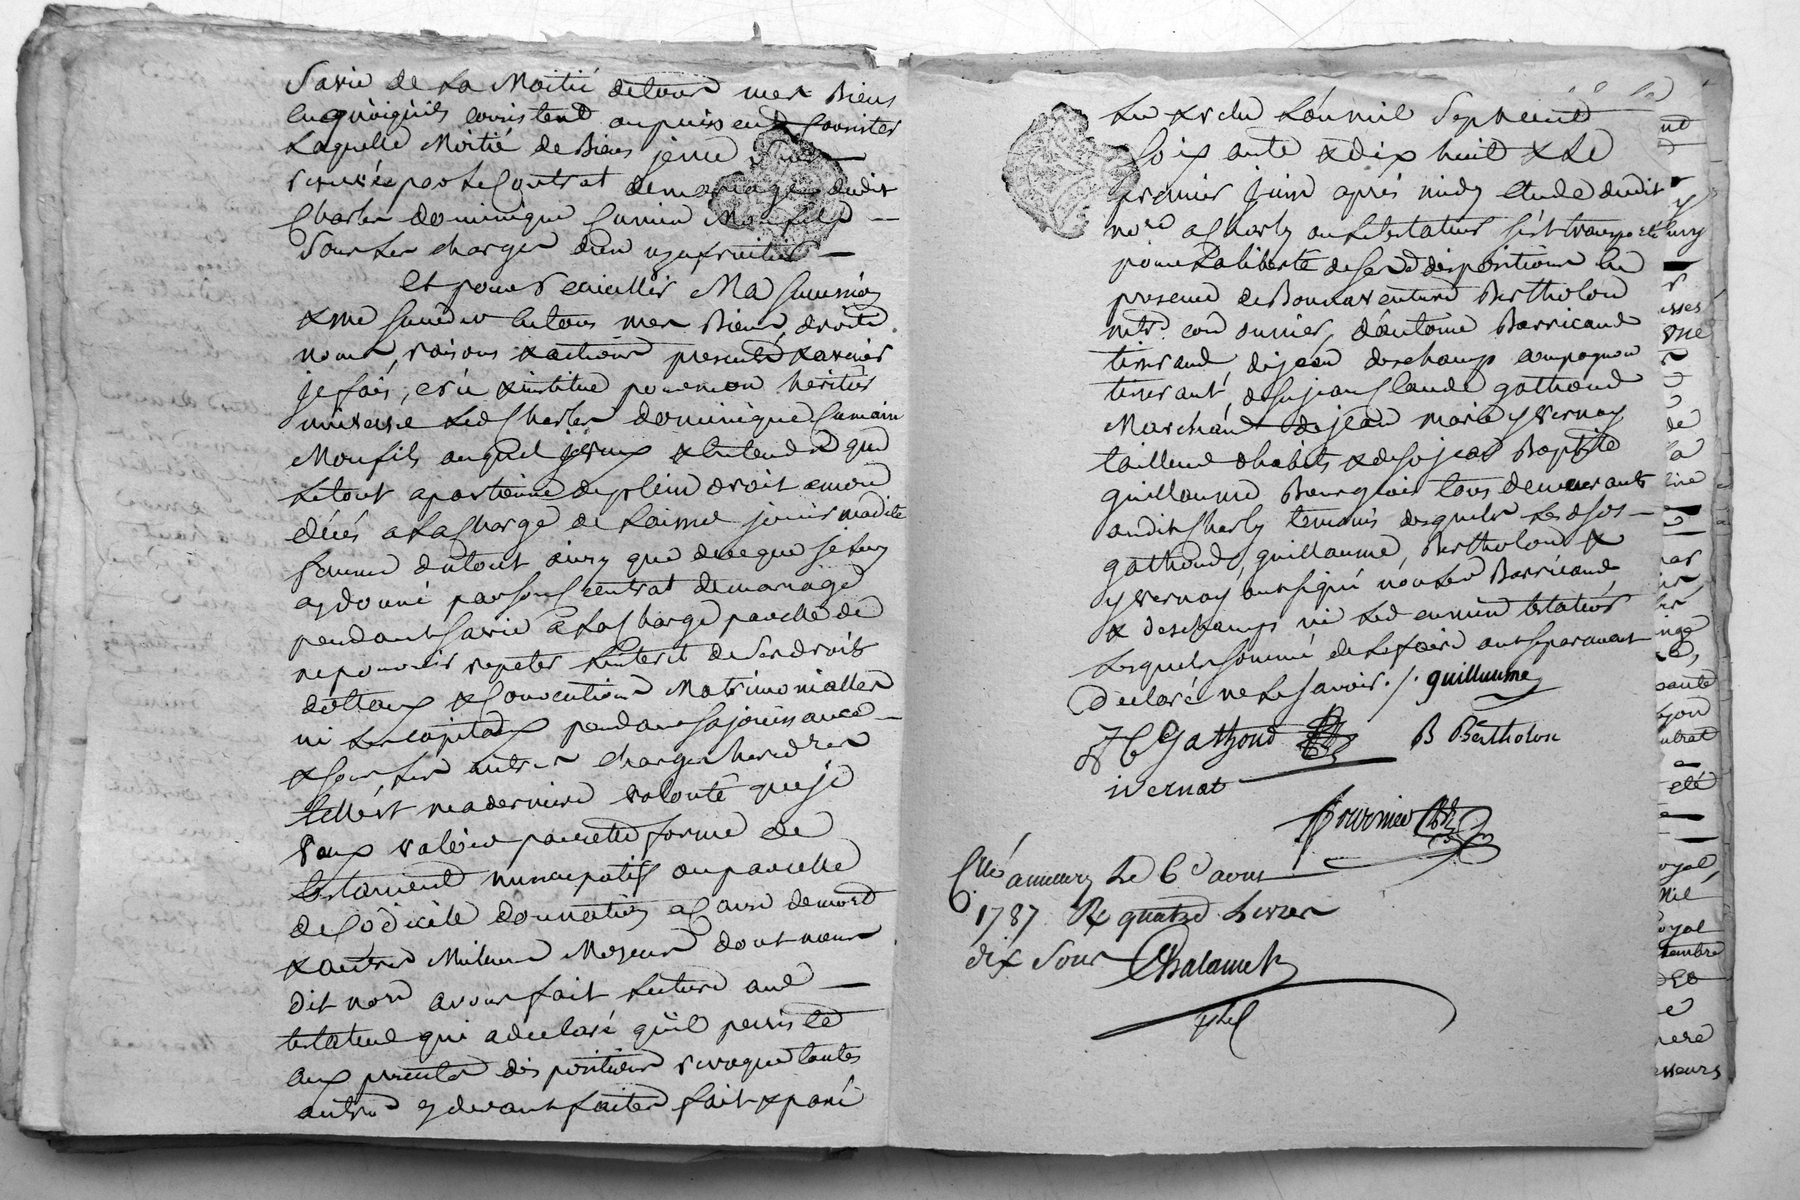 Savie de La Moitié detous mes Biens
enquoiquils consistent ou puissent Consister
Laquelle Moitié de Biens je me suis
reservée par le Contrat de mariage dudit
Charles dominique Cumin Mon fils
Sous les charges d'un usufruitier
Et pour recuillir Ma succession
& me succeder entous mes Biens, droits
noms, raisons & actions presents & avenir
je fais, crée & institue pour mon heritier
universel Led Charles dominique Cumin
Mon fils auquel je veux & entends que
Le tout apartienne de plein droit amon
décés a la Charge de Laisser jouir madite
femme du tout ainsy que de ce que je luy
ay donné par son Contrat de mariage
pendant Savie a la Charge par elle de
ne pouvoir repeter L'interet de Ses droits
dottaux & Conventions Matrimonialles
ni les capitaux pendant Sa jouissance
& sous les autres charges hered.res
telle est ma derniere volonté que je
veux valoir par cette forme de
testament nuncupatif ou par celle
de Codicile donnation a Cause de mort
& autres Milleurs Moyens dont nous
dit no.re avons fait Lecture aud
testateur qui a declaré qu'il persiste
aux presentes dispositions revoque toutes
autres cy devant faites fait & passé
Sept cent
Soixante & dix huit & Le
premier juin après midy etude dudit
no.re a Charly ou Le testateur s'est transporté
pour La liberté de Ses d dispositions en
presence de Bonnaventure Bertholon
m.tre cordonnier, d'antoine Barricaud
tisserand, de jean deschamps compagnon
tisserant, de s.r jean Claude gathoud
Marchand de jean marie yvernay
tailleur d'habits & de s.r jean Baptiste
guillaume Bourgeois tous demeurants
audit Charly temoins desquels Lesd s.rs
gathoud, guillaume, Bertholon &
yvernay ont signé non Les Barricaud
& deschamps ni Led cumin testateur
Lesquels sommé de Le faire ont separement
declaré ne Le savoir ./. guillaume
J C Gathoud B Bertholon
ivernat
fournier
C.llé a millery Le 6.e aout
1787 R quatre Livres
dix Sous Chalamel